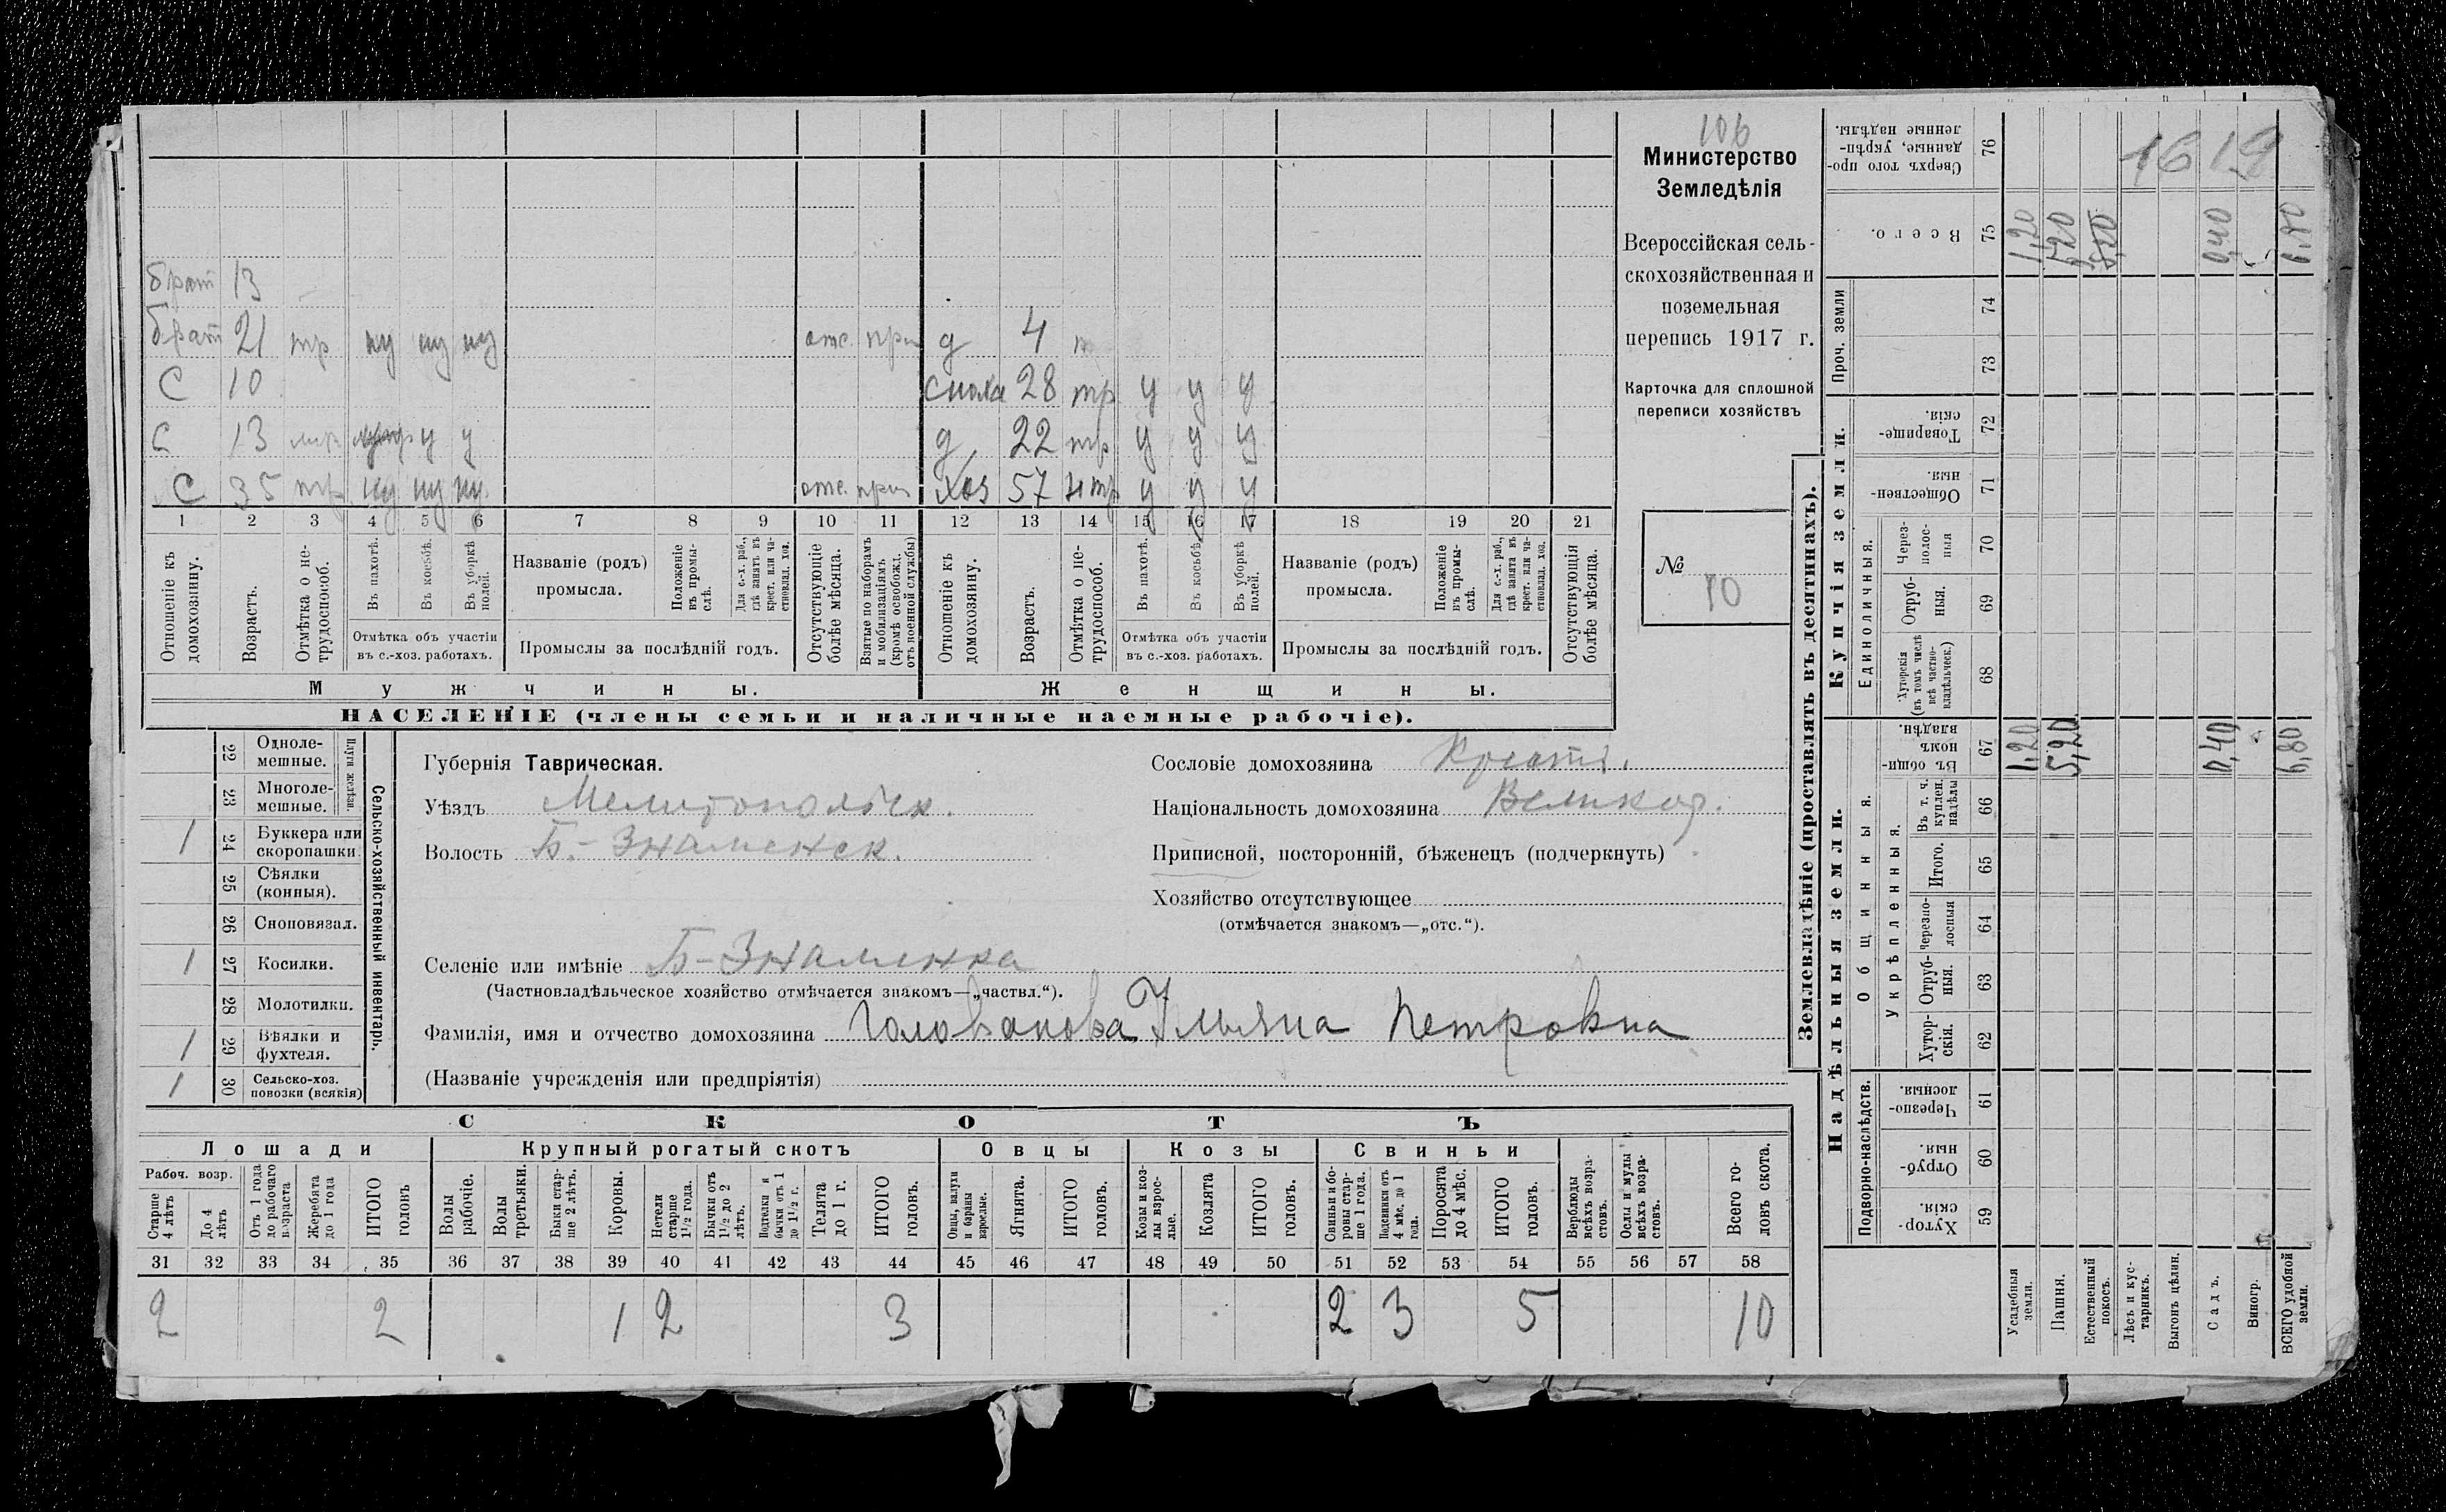 106
Министерство
Земледѣлія
Всероссійская сель-
скохозяйственная и
поземельная
перепись 1917 г.
Карточка для сплошной
переписи хозяйствъ
№ 10
брат 13
брат 21 тр ну ну ну отс. при д 4 н
С 10 сноха 28 тр у у у
С 13 у у д 22 тр у у у
С 35 тр ну ну ну отс. при хоз 57 нтр у у у
1 2 3 4 5 6 7 8 9 10 11 12 13 14 15 16 17 18 19 20 21
Отношеніе къ домохозяину.
Возрастъ.
Отмѣтка о не-трудоспособ.
Въ пахотѣ.
Въ косьбѣ.
Въ уборкѣ полей.
Отмѣтка объ участіи
въ с.-хоз. работахъ.
Названіе (родъ)
промысла.
Положеніе въ промы-слѣ.
Для с.-х. раб., гдѣ занятъ въ крест. или ча-стновлад. хоз.
Промыслы за послѣдній годъ.
Отсутствующіе болѣе мѣсяца.
Взятые по наборамъ и мобилизаціямъ (кромѣ освобожд. отъ военной службы)
Отношеніе къ домохозяину.
Возрастъ.
Отмѣтка о не-трудоспособ.
Въ пахотѣ.
Въ косьбѣ.
Въ уборкѣ полей.
Отмѣтка объ участіи
въ с.-хоз. работахъ.
Названіе (родъ)
промысла.
Положеніе въ промы-слѣ.
Для с.-х. раб., гдѣ занята въ крест. или ча-стновлад. хоз.
Промыслы за послѣдній годъ.
Отсутствующія болѣе мѣсяца.
Мужчины. Женщины.
НАСЕЛЕНІЕ (члены семьи и наличные наемные рабочіе).
Сельско-хозяйственный инвентарь.
Плуги желѣзн.
22 Одноле-мешные.
23 Многоле-мешные.
1 24 Буккера или скоропашки
25 Сѣялки (конныя).
26 Сноповязал.
1 27 Косилки.
28 Молотилки.
1 29 Вѣялки и фухтеля.
1 30 Сельско-хоз. повозки (всякія)
Губернія Таврическая.
Уѣздъ Мелитопольск.
Волость Б.-Знаменск.
Селеніе или имѣніе Б-Знаменка
(Частновладѣльческое хозяйство отмѣчается знакомъ—„частвл.“).
Фамилія, имя и отчество домохозяина Голованова Ульяна Петровна
(Названіе учрежденія или предпріятія)
Сословіе домохозяина Крестя.
Національность домохозяина Великор.
Приписной, посторонній, бѣженецъ (подчеркнуть)
Хозяйство отсутствующее
(отмѣчается знакомъ—„отс.“).
СКОТЪ
Лошади Крупный рогатый скотъ Овцы Козы Свиньи
Рабоч. возр.
Старше 4 лѣтъ
До 4 лѣтъ
Отъ 1 года до рабочаго возраста
Жеребята до 1 года
ИТОГО головъ
Волы рабочіе.
Волы третьяки.
Быки стар-ше 2 лѣтъ.
Коровы.
Нетели старше 1½ года.
Бычки отъ 1½ до 2 лѣтъ.
Подтелки и бычки отъ 1 до 1½ г.
Телята до 1 г.
ИТОГО головъ.
Овцы, валухи и бараны взрослые.
Ягнята.
ИТОГО головъ.
Козы и коз-лы взрос-лые.
Козлята
ИТОГО головъ.
Свиньи и бо-ровы стар-ше 1 года.
Подсвинки отъ 4 мѣс. до 1 года.
Поросята до 4 мѣс.
ИТОГО головъ.
Верблюды всѣхъ возра-стовъ.
Ослы и мулы всѣхъ возра-стовъ.
Всего го-ловъ скота.
31 32 33 34 35 36 37 38 39 40 41 42 43 44 45 46 47 48 49 50 51 52 53 54 55 56 57 58
2 2 1 2 3 2 3 5 10
Землевладѣніе (проставлять въ десятинахъ).
1619
Сверхъ того про-данные, укрѣп-ленные надѣлы. 76
Всего. 75 1,20 5,20 5,20 0,40 6,80
Проч. земли 74 73
Купчія земли.
Товарище-скія. 72
Обществен-ныя. 71
Единоличныя.
Через-полос-ныя 70
Отруб-ныя. 69
Хуторскія (въ томъ числѣ всѣ частно-владѣльческ.) 68
Надѣльныя земли.
Общинныя.
Въ общин-номъ владѣн. 67 1,20 5,20 0,40 6,80
Укрѣпленныя.
Въ т. ч. куплен. надѣлы 66
Итого. 65
Черезпо-лосныя 64
Отруб-ныя. 63
Хутор-скія. 62
Подворно-наслѣдств.
Черезпо-лосныя. 61
Отруб-ныя. 60
Хутор-скія. 59
Усадебныя земли.
Пашня.
Естественный покосъ.
Лѣсъ и кус-тарникъ.
Выгонъ цѣлин.
Садъ.
Виногр.
ВСЕГО удобной земли.